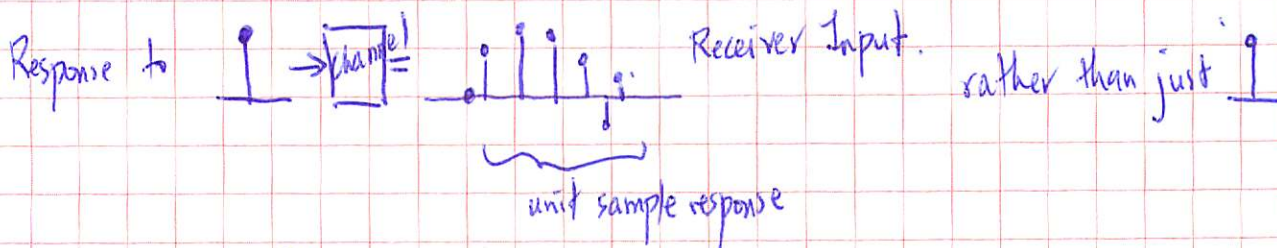 Response to → channel = Receiver Input. rather than just
unit sample response